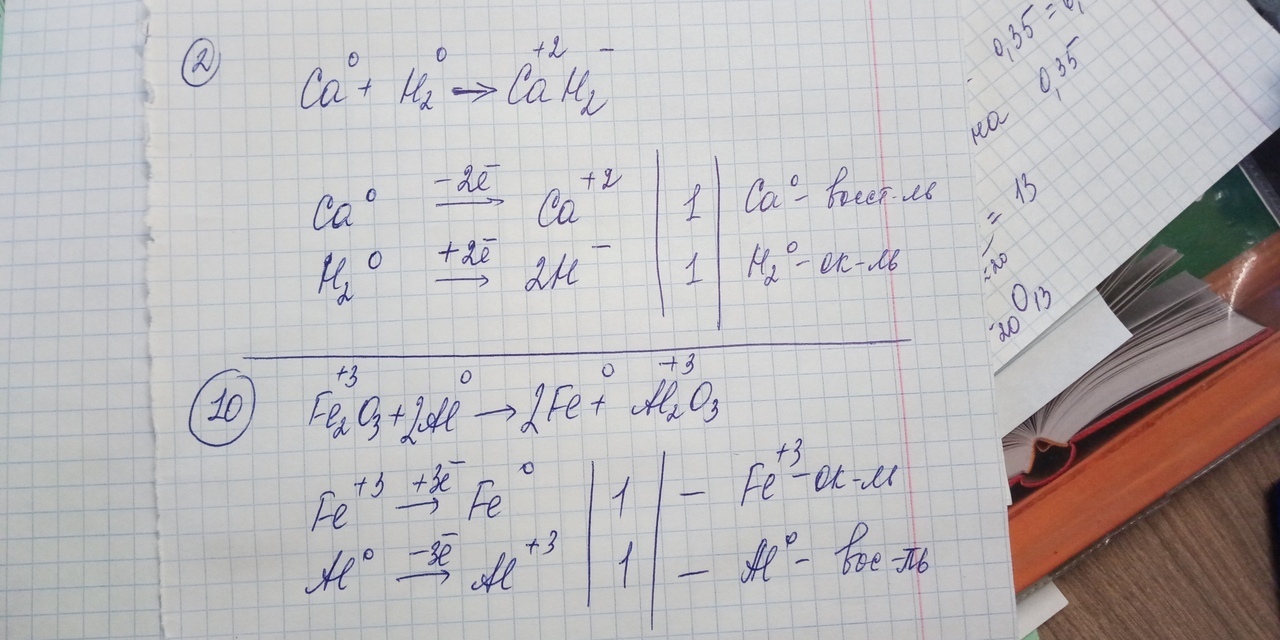 2
Ca⁰ + H₂⁰ → Ca⁺²H₂⁻
Ca⁰ -2ē → Ca⁺² | 1 | Ca⁰ - восст-ль
H₂⁰ +2ē → 2H⁻ | 1 | H₂⁰ - ок-ль
10
Fe₂⁺³O₃ + 2Al⁰ → 2Fe⁰ + Al₂⁺³O₃
Fe⁺³ +3ē → Fe⁰ | 1 | - Fe⁺³ - ок-ль
Al⁰ -3ē → Al⁺³ | 1 | - Al⁰ - вос-ль
0,35 =
на 0,35
= 13
20
20 O₁₃